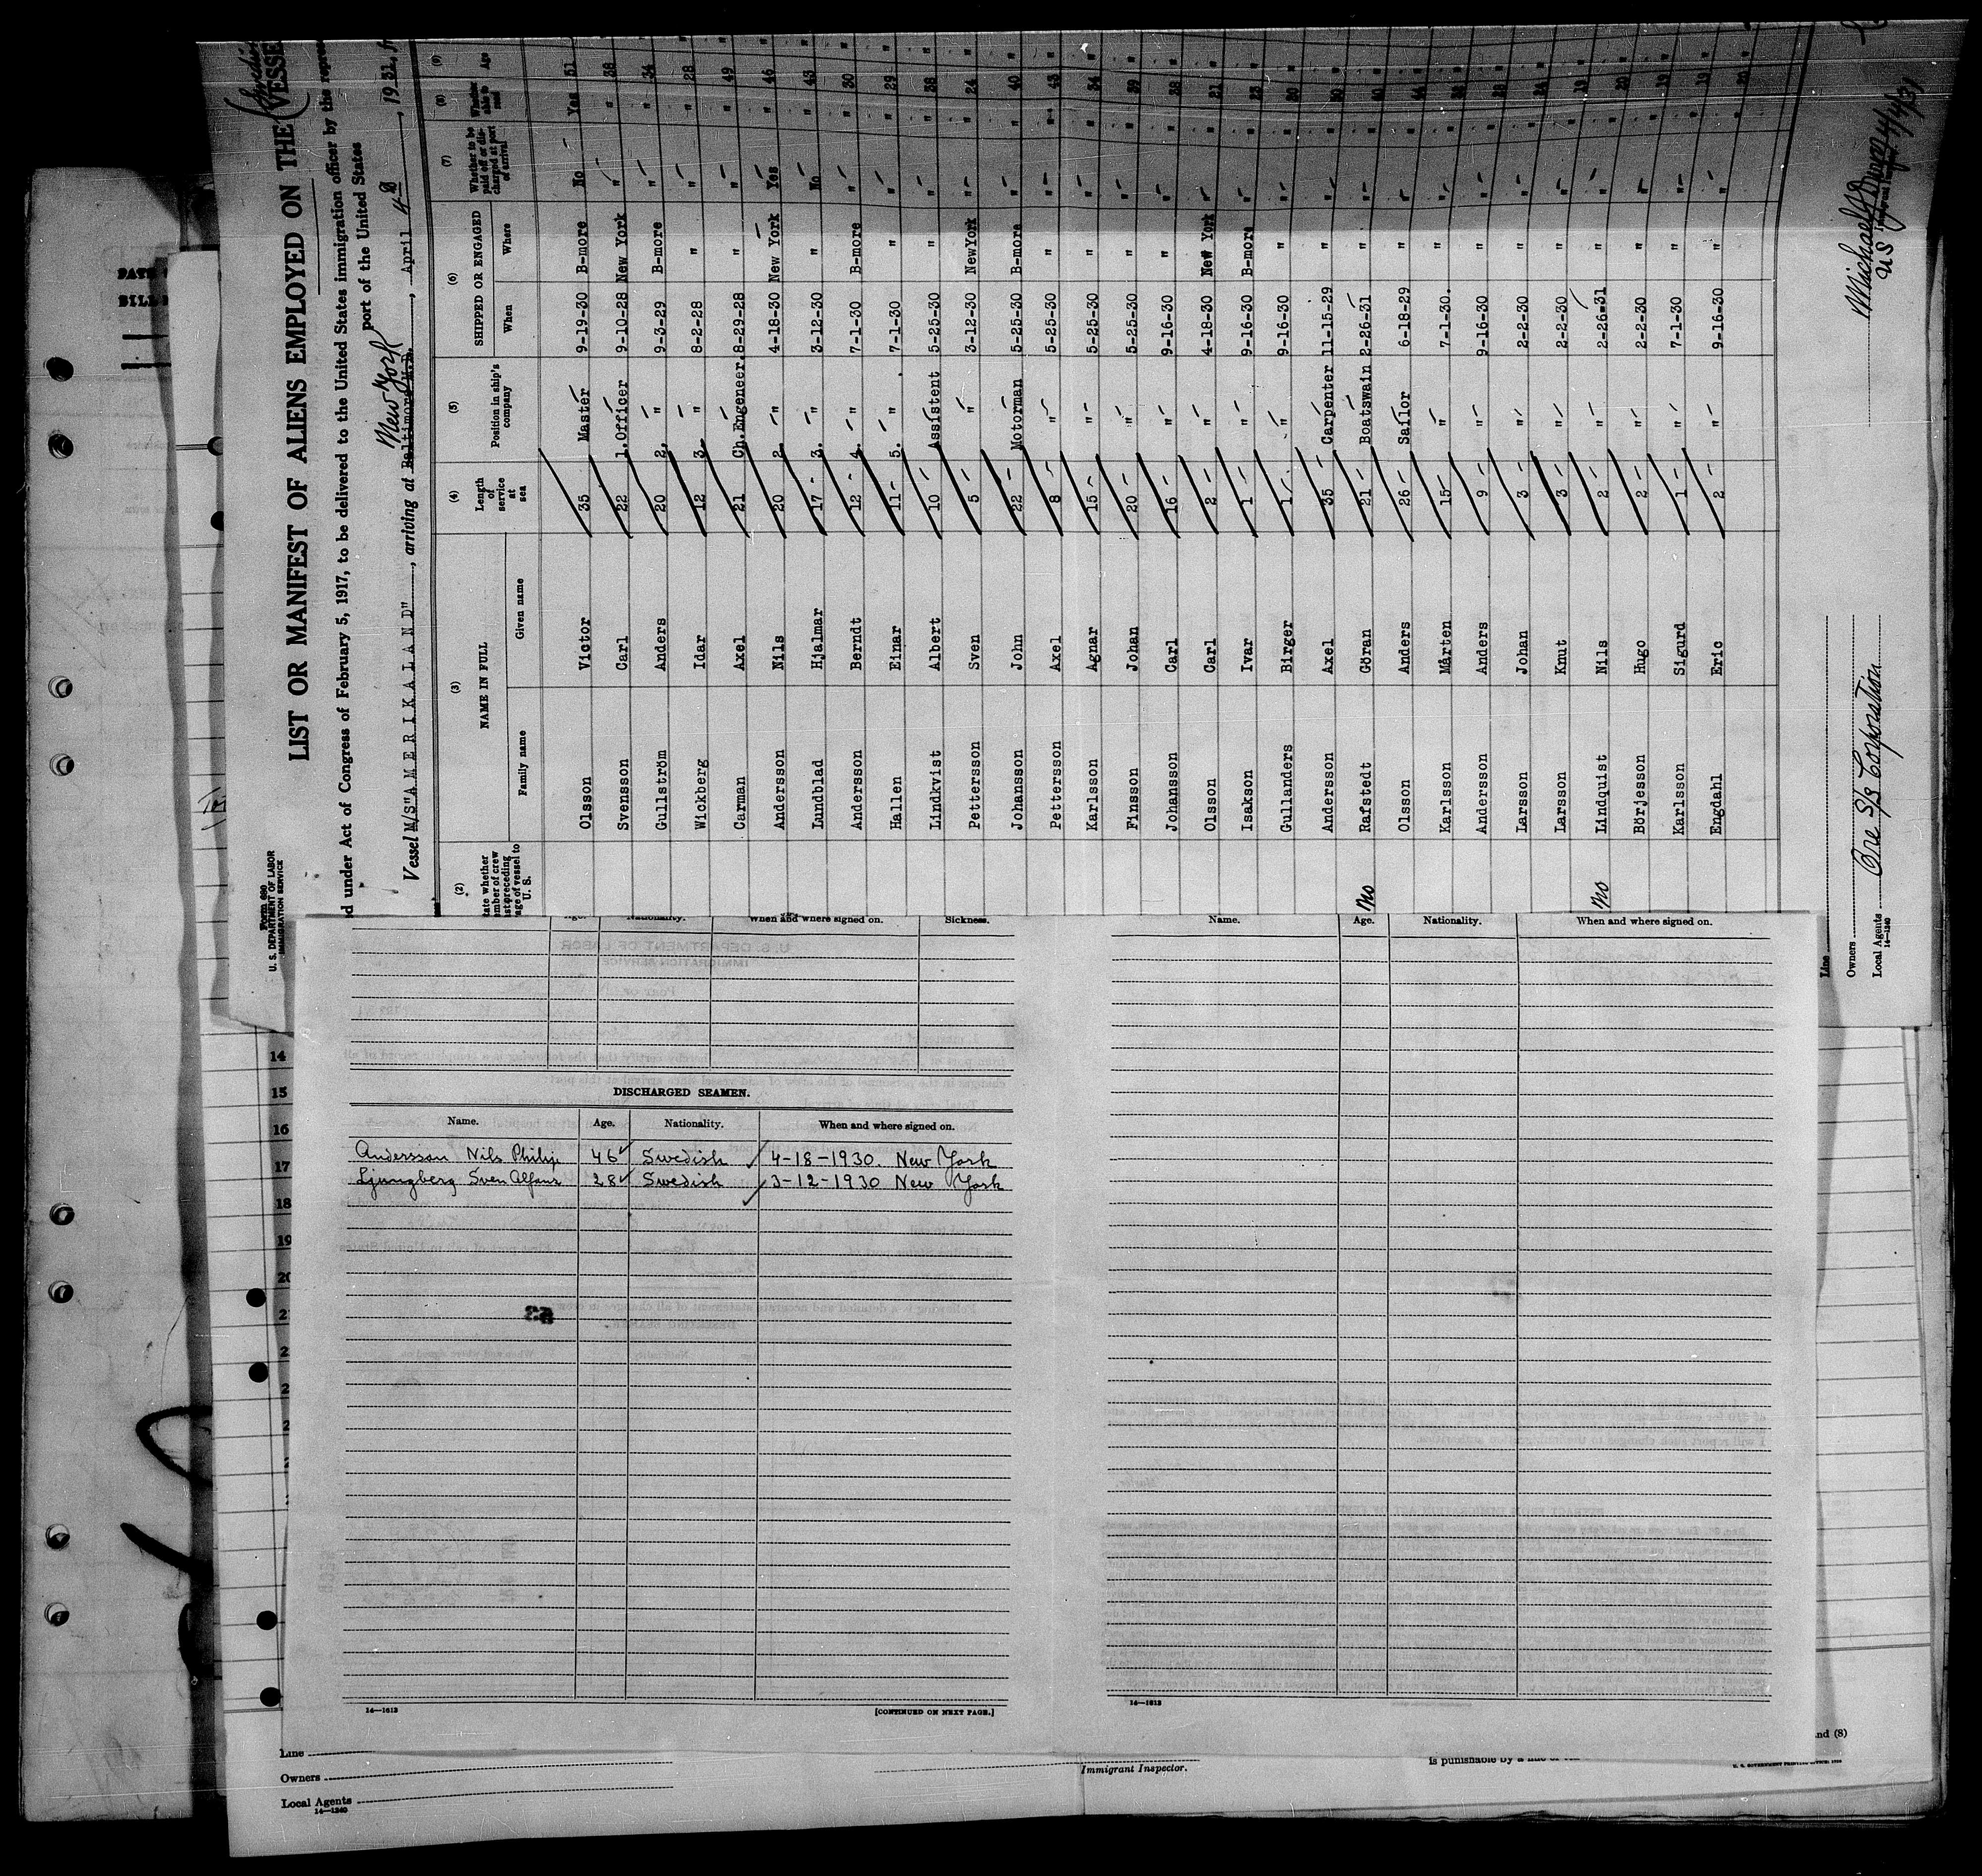 LIST OR MANIFEST OF ALIENS EMPLOYED ON THE VESSE
(Swedish
Form 680
U. S. DEPARTMENT OF LABOR
IMMIGRATION SERVICE
ed under Act of Congress of February 5, 1917, to be delivered to the United States immigration officer by the repres
New York port of the United States
Vessel M/S"AMERIKALAND", arriving at Baltimore M.D., April 4, 1931, fr
(2) (3) (4) (5) (6) (7) (8) (9)
NAME IN FULL
SHIPPED OR ENGAGED
Family name Given name Length of service at sea Position in ship's company When Where Whether to be paid off or discharged at port of arrival Whether able to read Age
Olsson Victor 35 Master 9-19-30 B-more No Yes 51
Svensson Carl 22 1.Officer 9-10-28 New York " " 38
Gullström Anders 20 2. " 9-3-29 B-more " " 34
Wickberg Idar 12 3. " 8-2-28 " " " 28
Carman Axel 21 Ch.Engeneer. 8-29-28 " " " 49
Andersson Nils 20 2. " 4-18-30 New York Yes " 46
Lundblad Hjalmar 17 3. " 3-12-30 " No " 43
Andersson Berndt 12 4. " 7-1-30 B-more " " 30
Hallen Einar 11 5. " 7-1-30 " " " 29
Lindkvist Albert 10 Assistent 5-25-30 " " " 38
Pettersson Sven 5 " 3-12-30 NewYork " " 24
Johansson John 22 Motorman 5-25-30 B-more " " 40
Pettersson Axel 8 " 5-25-30 " " " 43
Karlsson Agnar 15 " 5-25-30 " " " 34
Finsson Johan 20 " 5-25-30 " " " 39
Johansson Carl 16 " 9-16-30 " " " 28
Olsson Carl 2 " 4-18-30 New York " " 21
Isakson Ivar 1 " 9-16-30 B-more " " 23
Gullanders Birger 1 " 9-16-30 " " " 20
Andersson Axel 35 Carpenter 11-15-29 " " "
No Rafstedt Göran 21 Boatswain 2-26-31 " " " 40
Olsson Anders 26 Sailor 6-18-29 " " " 44
Karlsson Mårten 15 " 7-1-30. " " "
Andersson Anders 9 " 9-16-30 " " "
Larsson Johan 3 " 2-2-30 " " " 24
Larsson Knut 3 " 2-2-30 " " " 19
No Lindquist Nils 2 " 2-26-31 " " " 20
Börjesson Hugo 2 " 2-2-30 " " " 19
Karlsson Sigurd 1 " 7-1-30 " " " 19
Engdahl Eric 2 " 9-16-30 " " " 20
Line
Owners
Local Agents Ore S/S Corporation
14—1240
4/4/31
US Immigrant
DATE
BILL
Age. Nationality. When and where signed on. Sickness.
DISCHARGED SEAMEN.
Name. Age. Nationality. When and where signed on.
Andersson Nils Philip 46 Swedish 4-18-1930. New York
Ljungberg Sven Alfons 28 Swedish 3-12-1930 New York
14—1613
[CONTINUED ON NEXT PAGE.]
Name. Age. Nationality. When and where signed on.
14—1613
14
15
16
17
18
19
20
Line
Owners
Local Agents
14—1240
Immigrant Inspector.
nd (8)
is punishable by a